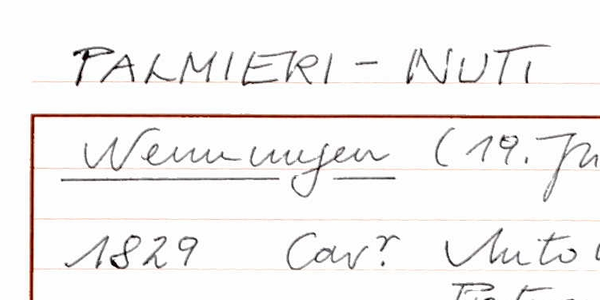 PALMIERI - NUTI
Nennungen (19. J
1829 Cav.r Anto